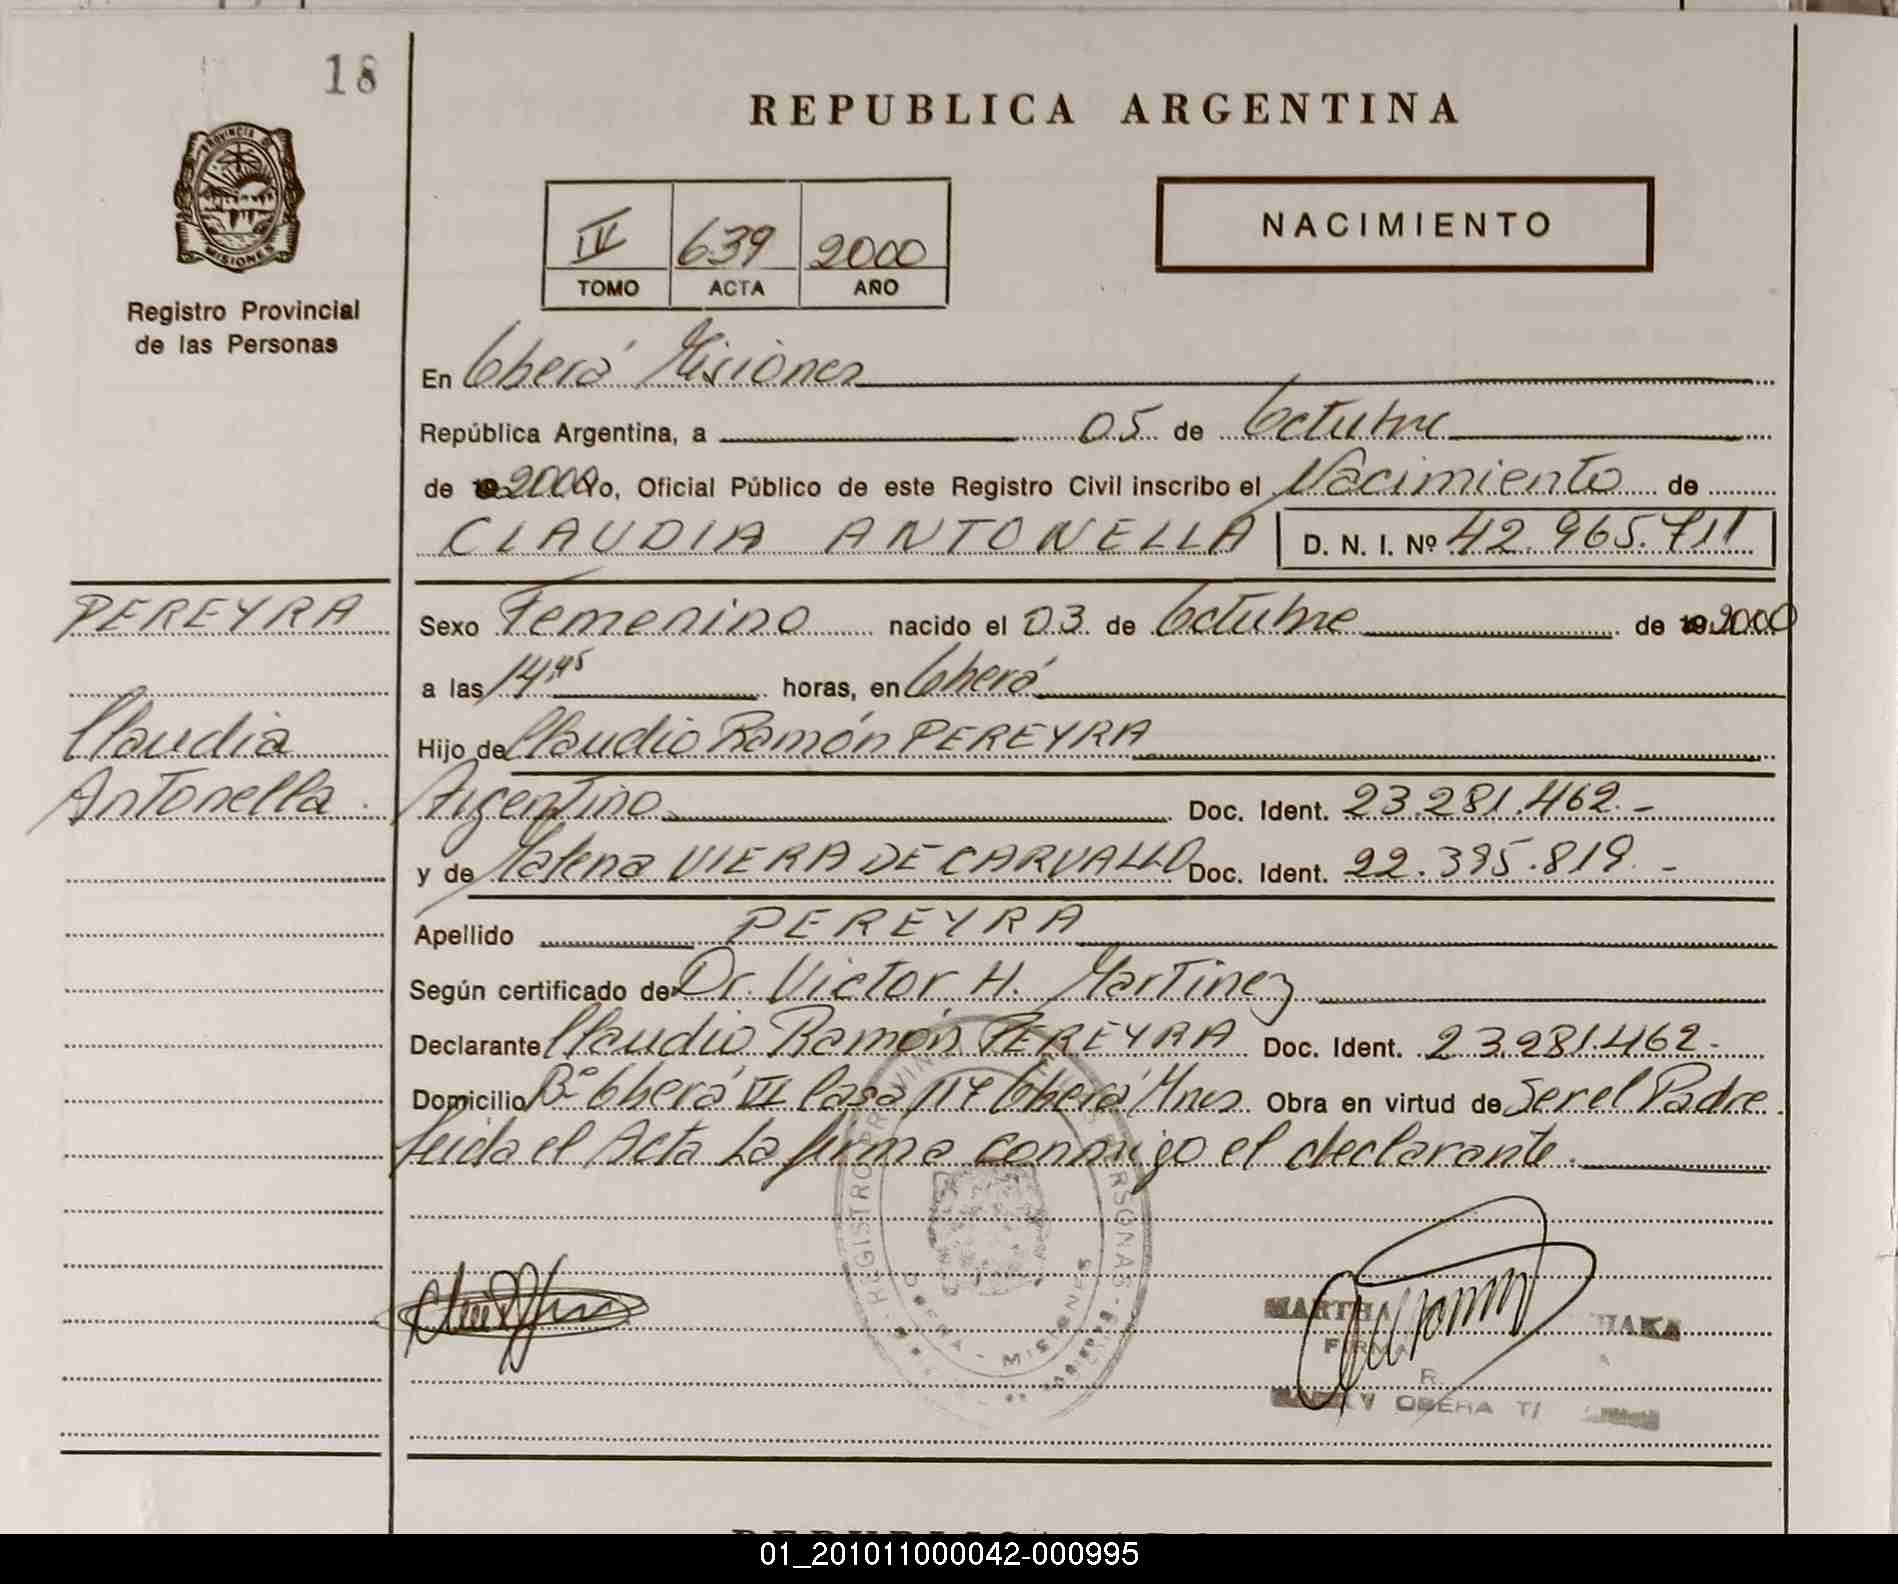 18
REPUBLICA ARGENTINA
PROVINCIA DE
MISIONES
NACIMIENTO
IV 639 2000
TOMO ACTA AÑO
Registro Provincial
de las Personas
En Oberá Misiones
República Argentina, a 05 de Octubre
de 2000 Yo, Oficial Público de este Registro Civil inscribo el Nacimiento de
CLAUDIA ANTONELLA D. N. I. Nº 42.965.711
PEREYRA
Claudia
Antonella.
Sexo Femenino nacido el 03 de Octubre de 2000
a las 14,45 horas, en Oberá
Hijo de Claudio Ramón PEREYRA
Argentino Doc. Ident. 23.281.462.-
y de Malena VIERA DE CARVALLO Doc. Ident. 22.395.819.-
Apellido PEREYRA
Según certificado de Dr. Victor H. Martinez
Declarante Claudio Ramón PEREYRA Doc. Ident. 23.281.462.-
Domicilio Bº Oberá VI Casa 117 Oberá Mnes Obra en virtud de Ser el Padre.
Leida el Acta La firma conmigo el declarante.
REGISTRO PROVINCIAL DE LAS PERSONAS
OBERA - MISIONES
MARTHA
FIRMA
R.
OBERA
REPUBLICA
01_201011000042-000995